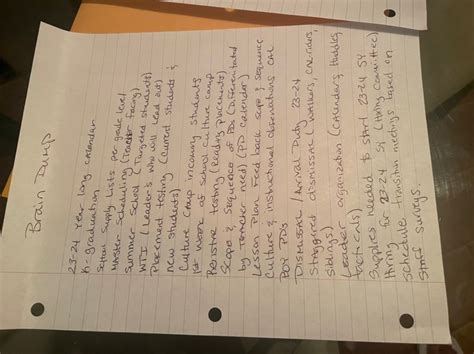 Brain Dump
23-24 Year long calendar
K-graduation
School Supply Lists per grade level
Master Scheduling (Teacher facing)
Summer School (Targeted students)
WTI (Leader's who will lead out)
Placement testing (current students &
new students)
Culture Camp incoming students
1st week of school culture camp
Pre/site testing (Reading Placements)
Scope & Sequence of PDs (Differentiated
by Teacher need) (PD calendar)
Lesson Plan Feed back scope & sequence
Culture & instructional observations Cal
BOY PDs
Dismissal / Arrival Duty 23-24
Staggered dismissal (walkers, car-riders,
siblings)
Leader organization (calendars, Huddles,
tact-calls)
Supplies needed to start 23-24 SY
Hiring for 23-24 SY (Hiring Committee)
Schedule transition meetings based on
Staff surveys